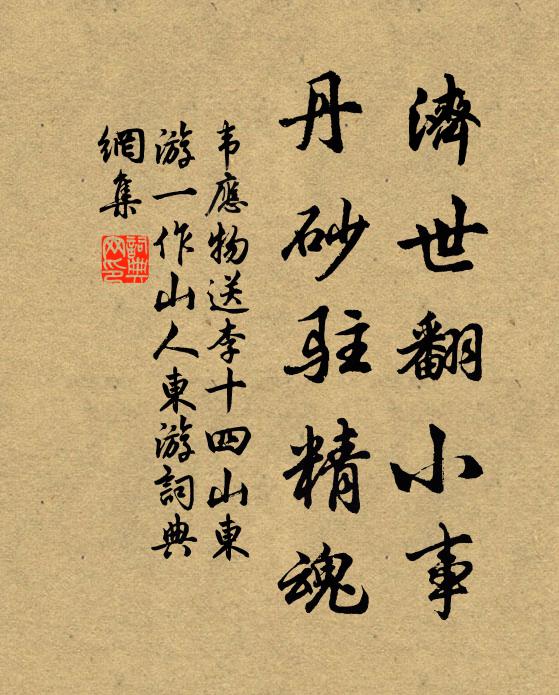 濟世翻小事
丹砂駐精魂
韦應物送李十四山東
游一作山人東游詞典
網集
詞典網印